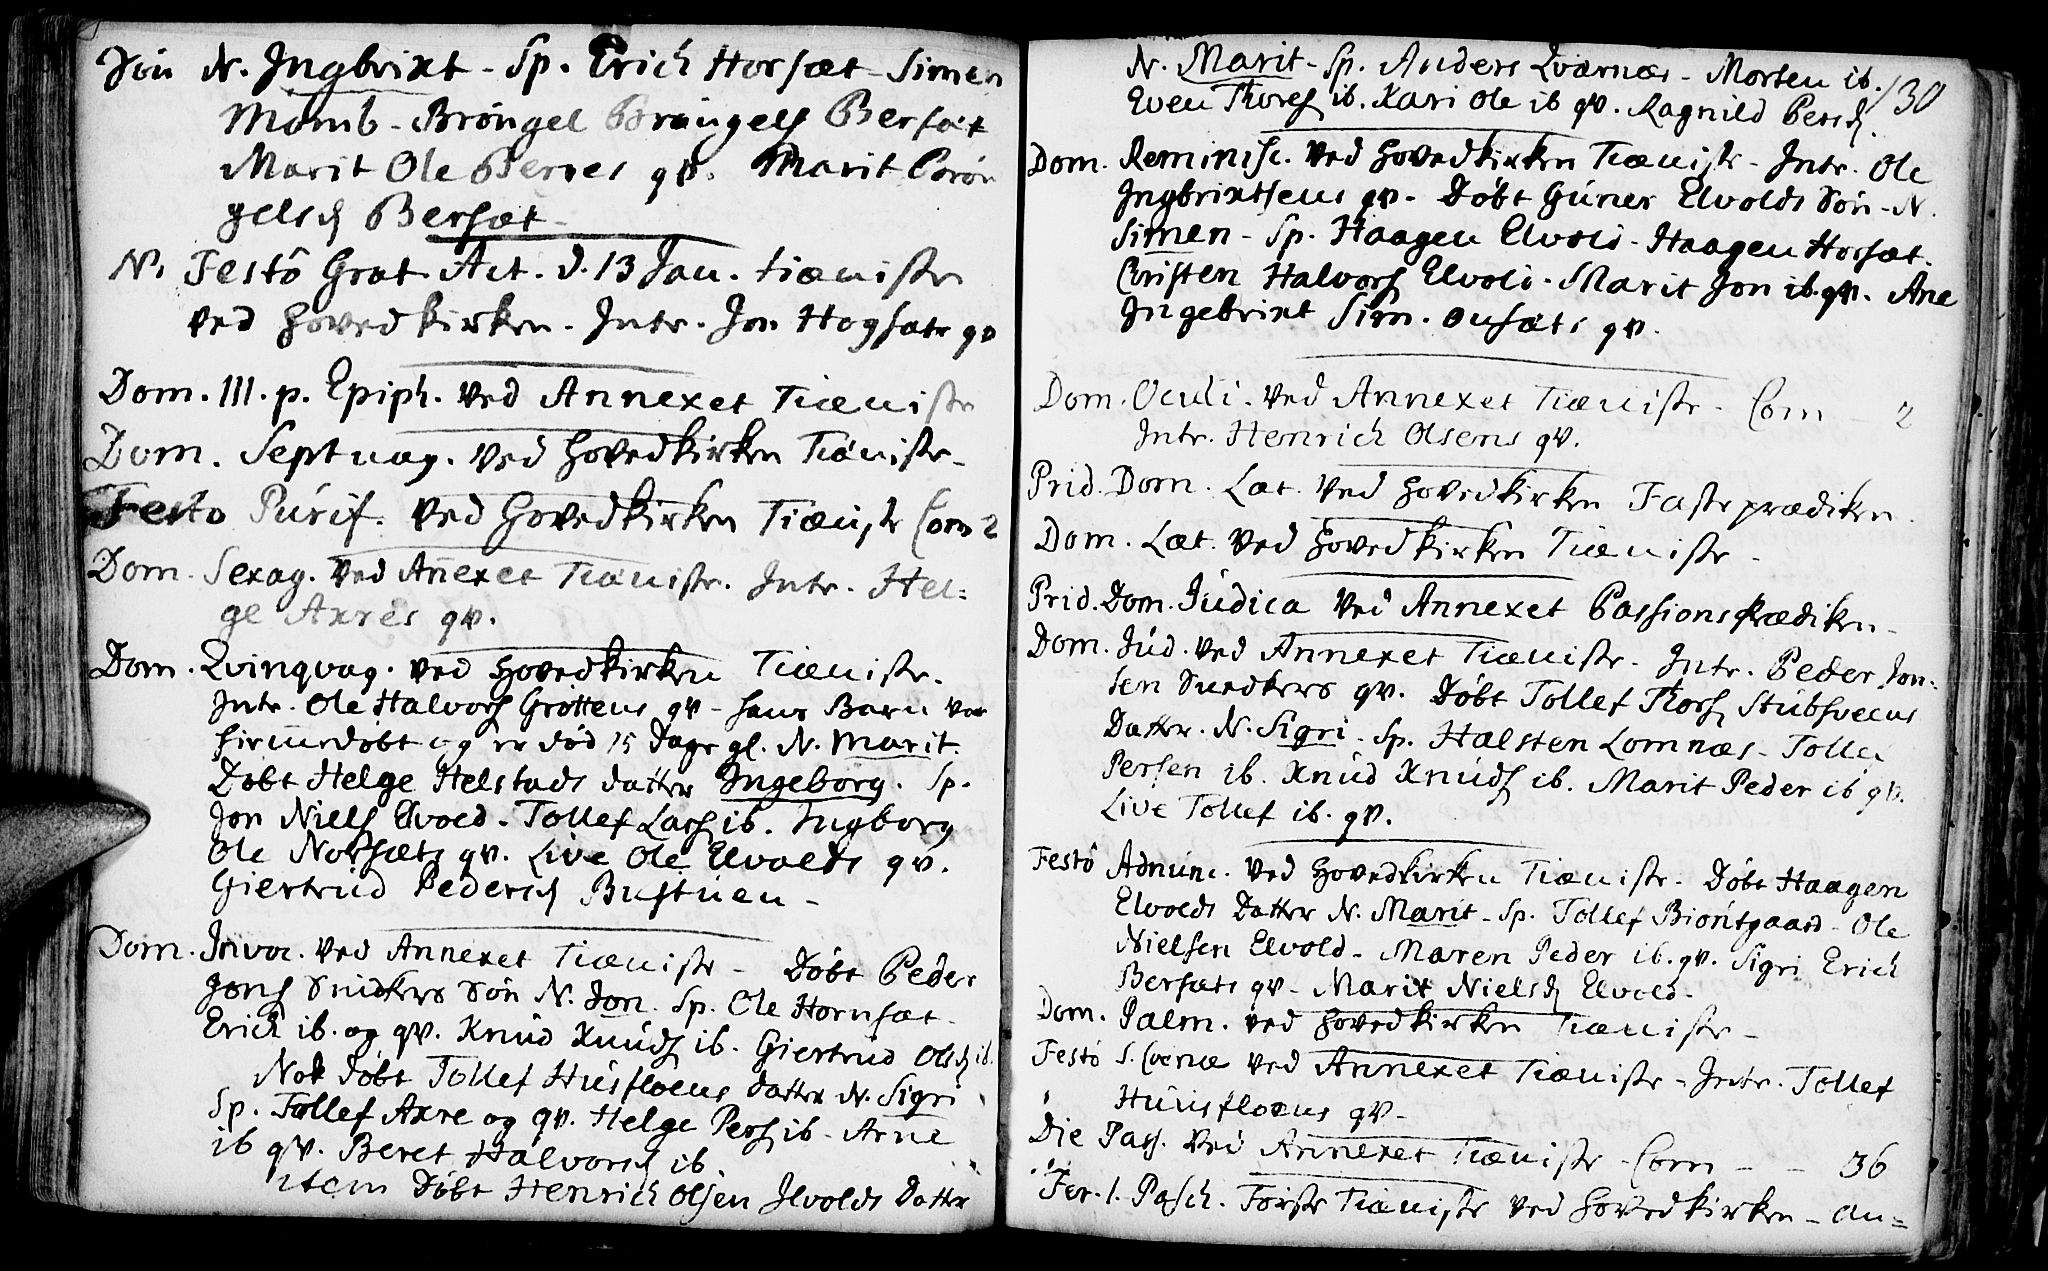 Søn N. Ingbrixt - Sp. Erich Horsæt - Simen
Momb - Brøngel Brøngels Bersæt
Marit Ole Berses qv. Marit Brøn
gelsd Bersæt -
N. Festo Grat. Act. d. 13 Jan. tiæniste
ved Hovedkirken. Intr. Jon Hogsæts qv
Dom. III. p. Epiph. ved Annexet Tiæniste
Dom. Septuag. ved Hovedkirken Tiæniste -
Festo Purif. ved Hovedkirken Tiæniste Com 2
Dom. Sexag. ved Anexet Tiæniste. Intr. Hel=
ge Axres qv.
Dom. Qvinqvag. ved Hovedkirken Tiæniste.
Intr. Ole Halvors Grøttens qv - hans Barn var
hiemedøbt og er død 15 Dage gl. N. Marit.
Døbt Helge Helstads datter Ingeborg. Sp.
Jon Niels Elvoed - Tollef Lars ib. Ingborg
Ole Norsæts qv. Live Ole Elvolds qv.
Giertrud Pedersd Bustuen -
Dom. Invoc. ved Annexet Tiæniste - Døbt Peder
Jons Snidkers Søn N. Jon. Sp. Ole Hornsæt -
Erich ib. og qv. Knud Knuds ib. Giertrud Olsd ib.
Nok døbt Tollef Husfloens datter N. Sigri
Sp. Tollef Axre og qv. Helge Pers ib - Arne
ib qv. Beret Halvorsd ib.
item Døbt Henrich Olsen Ilvolds Datter
N. Marit - Sp. Anders Qværnæs - Morten ib. 130
Even Thores ib. Kari Ole ib qv. Ragnild Persd.
Dom. Reminisc. ved Hovedkirken Tiæniste - Intr. Ole
Ingbrixtsens qv - Døbt Guner Elvolds Søn - N.
Simen - Sp. Haagen Elvold - Haagen Horsæt.
Cristen Halvors Elvold - Marit Jon ib. qv. Ane
Ingebrixt Sim. onsæts qv.
Dom. Oculi. ved Annexet Tiæniste - Com - 2
Intr. Henrich Olsens qv.
Prid. Dom. Læt. ved Hovedkirken Fasteprædiken.
Dom. Læt. ved Hovedkirken Tiæniste -
Prid. Dom. Judica ved Annexet Passionsprædiken -
Dom. Jud. ved Annexet Tiæniste - Intr. Peder Jon=
sen Snedkers qv. Døbt Tollef Thors Stubsveens
Datter. N. Sigri - Sp. Halsten Lomnæs - Tollef
Persen ib. Knud Knuds ib. Marit Peder ib qv.
Live Tollef ib. qv.
Festo Adnunc. ved Hovedkirken Tiæniste - Døbt Haagen
Elvolds Datter N. Marit - Sp. Tollef Biøntgaard - Ole
Nielsen Elvold - Maren Peder ib. qv. Sigri Erich
Bersæts qv - Marit Nielsd Elvold -
Dom. Palm. ved Hovedkirken Tiæniste -
Festo S. Coenæ ved Annexet Tiæniste - Intr. Tollef
Huusfloens qv -
Die Pasc. ved Annexet Tiæniste - Com - - 36
Fer. 1. Pasch. Første Tiæniste ved Hovedkirken - an=